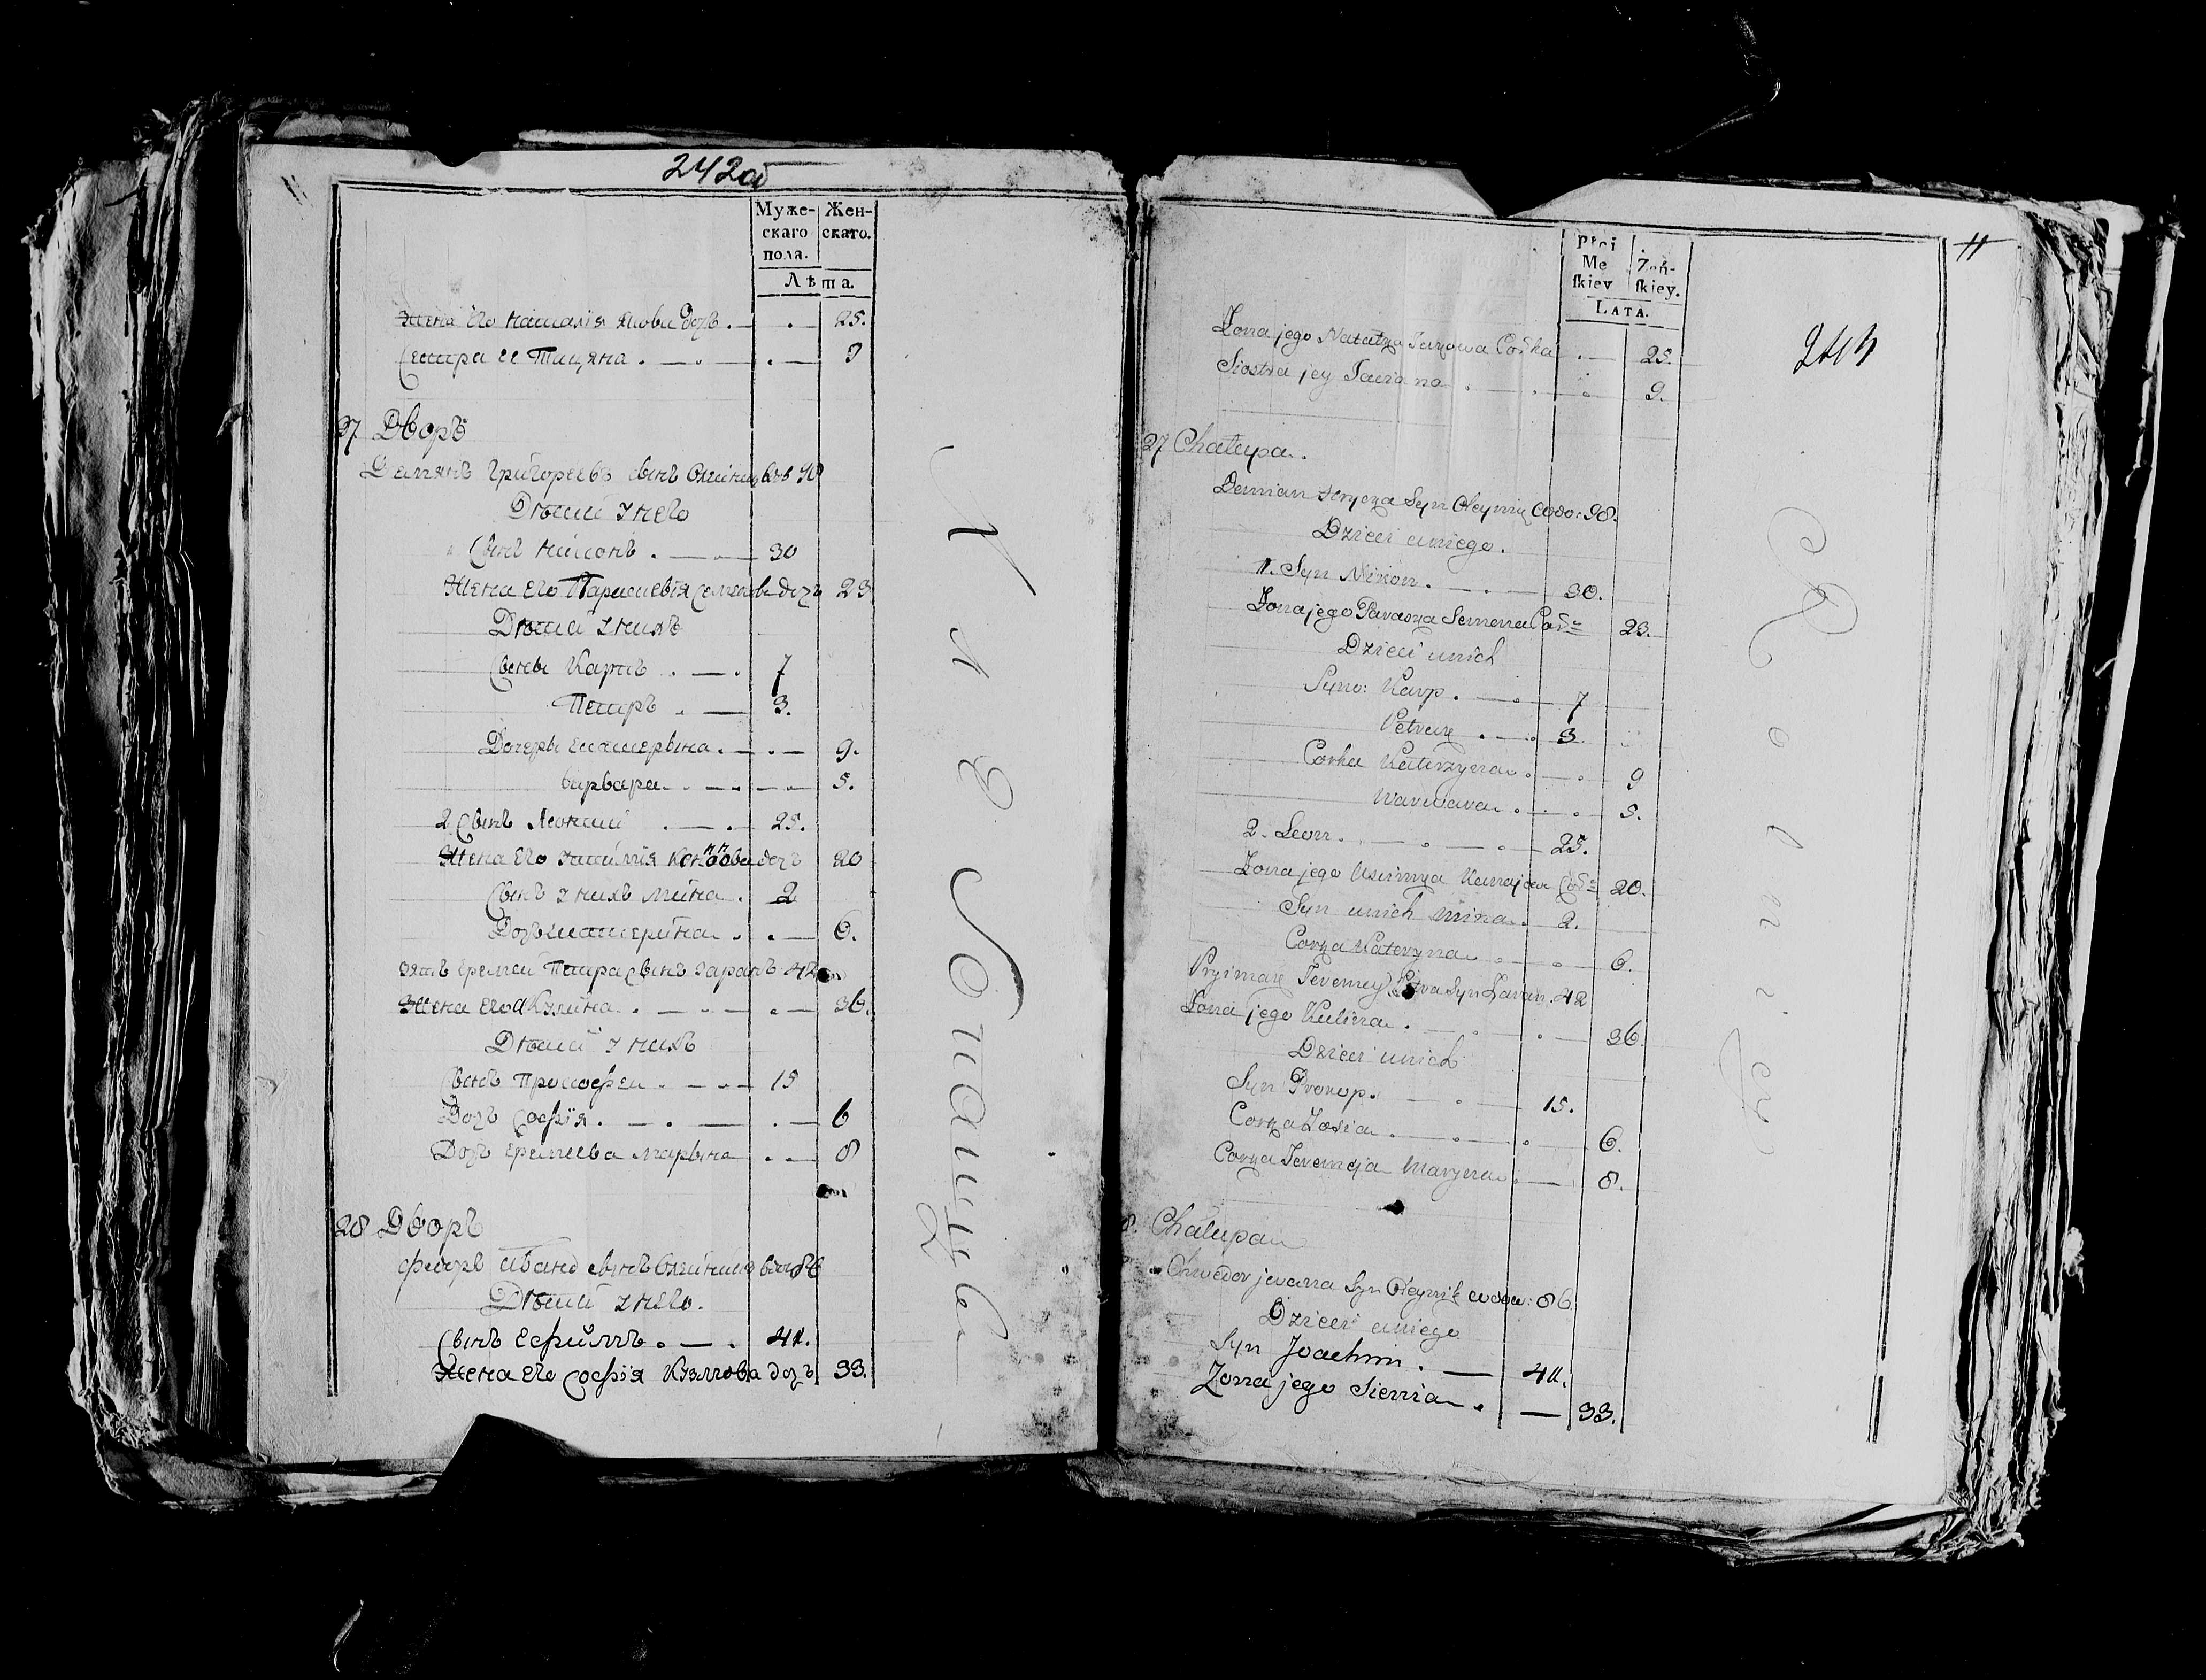 242об
Муже-
скаго
пола.
Жен-
скаго.
Лѣта.
Жена Его Наталія Якова дочь . — . — 25.
Сестра Ее Татяна . — . . — 9
27 Дворъ
Демянъ Григореевъ сынъ Олейникъ вдов
Дѣти у него
Сынъ Никонъ . — 30
Жена Его Параскевія Семенова дочь 23
Дѣти у нихъ
Сыны Карпъ . — . 7
Петръ . — 3.
Дочеры Екатерына . — . — 9.
Варвара . . — . — 5.
2 Сынъ Леонтій . — . — 25.
Жена Его дочь 20
Сынъ у нихъ Мина . 2
Дочь Катерина . . — 6.
Зять Еремей Петра сынъ 42
Жена Его Акулина . — . — 36.
Дѣти у нихъ
Сынъ Прокофей . — . — 15
Дочь Софія . — . — . — 6
Дочь Еремеева Марына . — 8
28 Дворъ
Федоръ Ивана сынъ Олейникъ вдовъ 86
Дѣти у него.
Сынъ Ефимъ . — . 41.
Жена Его Софія Кузмова дочь 33.
Płci
Me
skiey
Żeń-
skiey.
LATA.
11
243
Żona jego Natalka Jakowa Corka . — 25.
Siostra jey Taciana . . . 9.
27 Chałupa.
Demian Hryćka Syn Oleynik wdo: 98.
Dzieci uniego.
1. Syn Nikon . — . — 30.
Żona jego Paraska Semena Cor: 23.
Dzieci unich
Syno: Karp . — . 7
Petruk . — . 3.
Corka Katerzyna . — . 9
Warwara . . . 5.
2. Leon . — . — . — 25.
Żona jego Cor: 20.
Syn unich Mina . 2.
Corka Kateryna . . — 6.
Pryimak Jeremey Petra Syn 42
Żona jego Kulina . — . . — 36.
Dzieci unich
Syn Prokop . — . — 15.
Corka Zosia . — . — . — 6.
Corka Jeremeja Maryna . — 8.
8. Chałupa
Chwedor jwana Syn Oleynik wdow: 86
Dzieci uniego
Syn Joachim . — 41.
Żona jego . — 33.